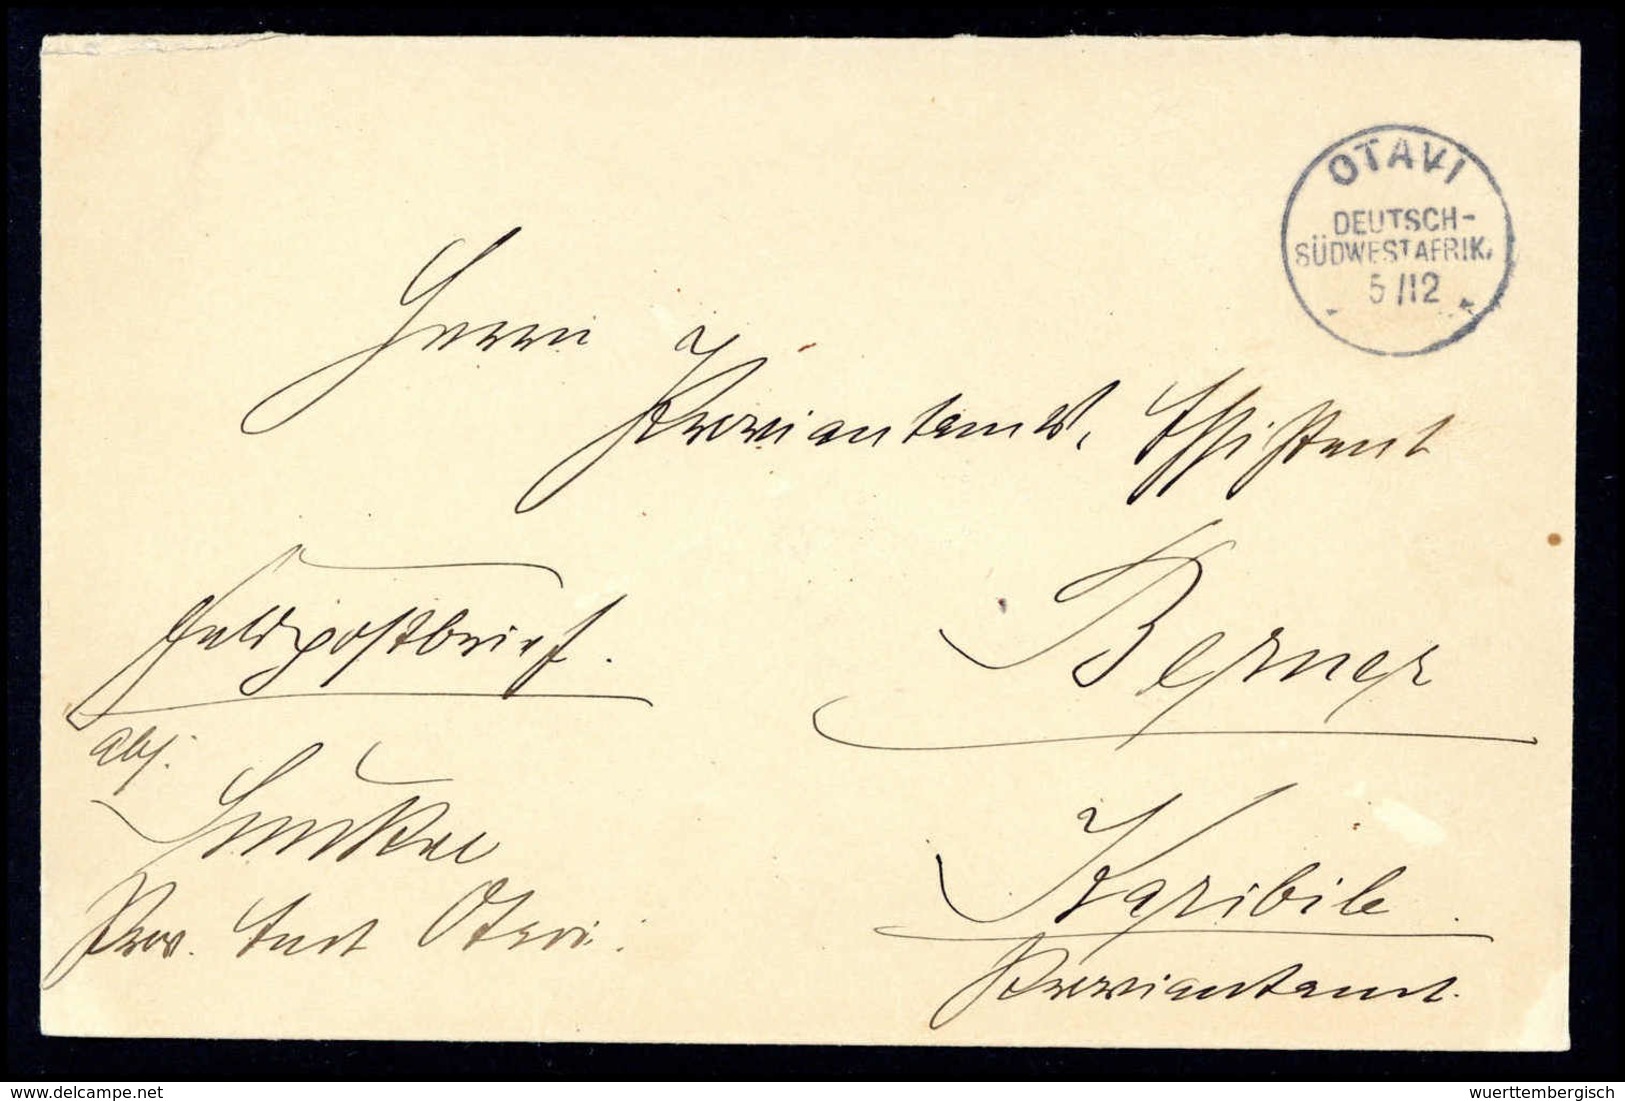 OTAVI
DEUTSCH-
SÜDWESTAFRIK.
5/12
Herrn
Proviantamts. Assistent
Feldpostbrief.
Berner
Abs:
Karibib
Prov. Amt Otavi.
Proviantamt.
delcampe.net
wuerttembergisch